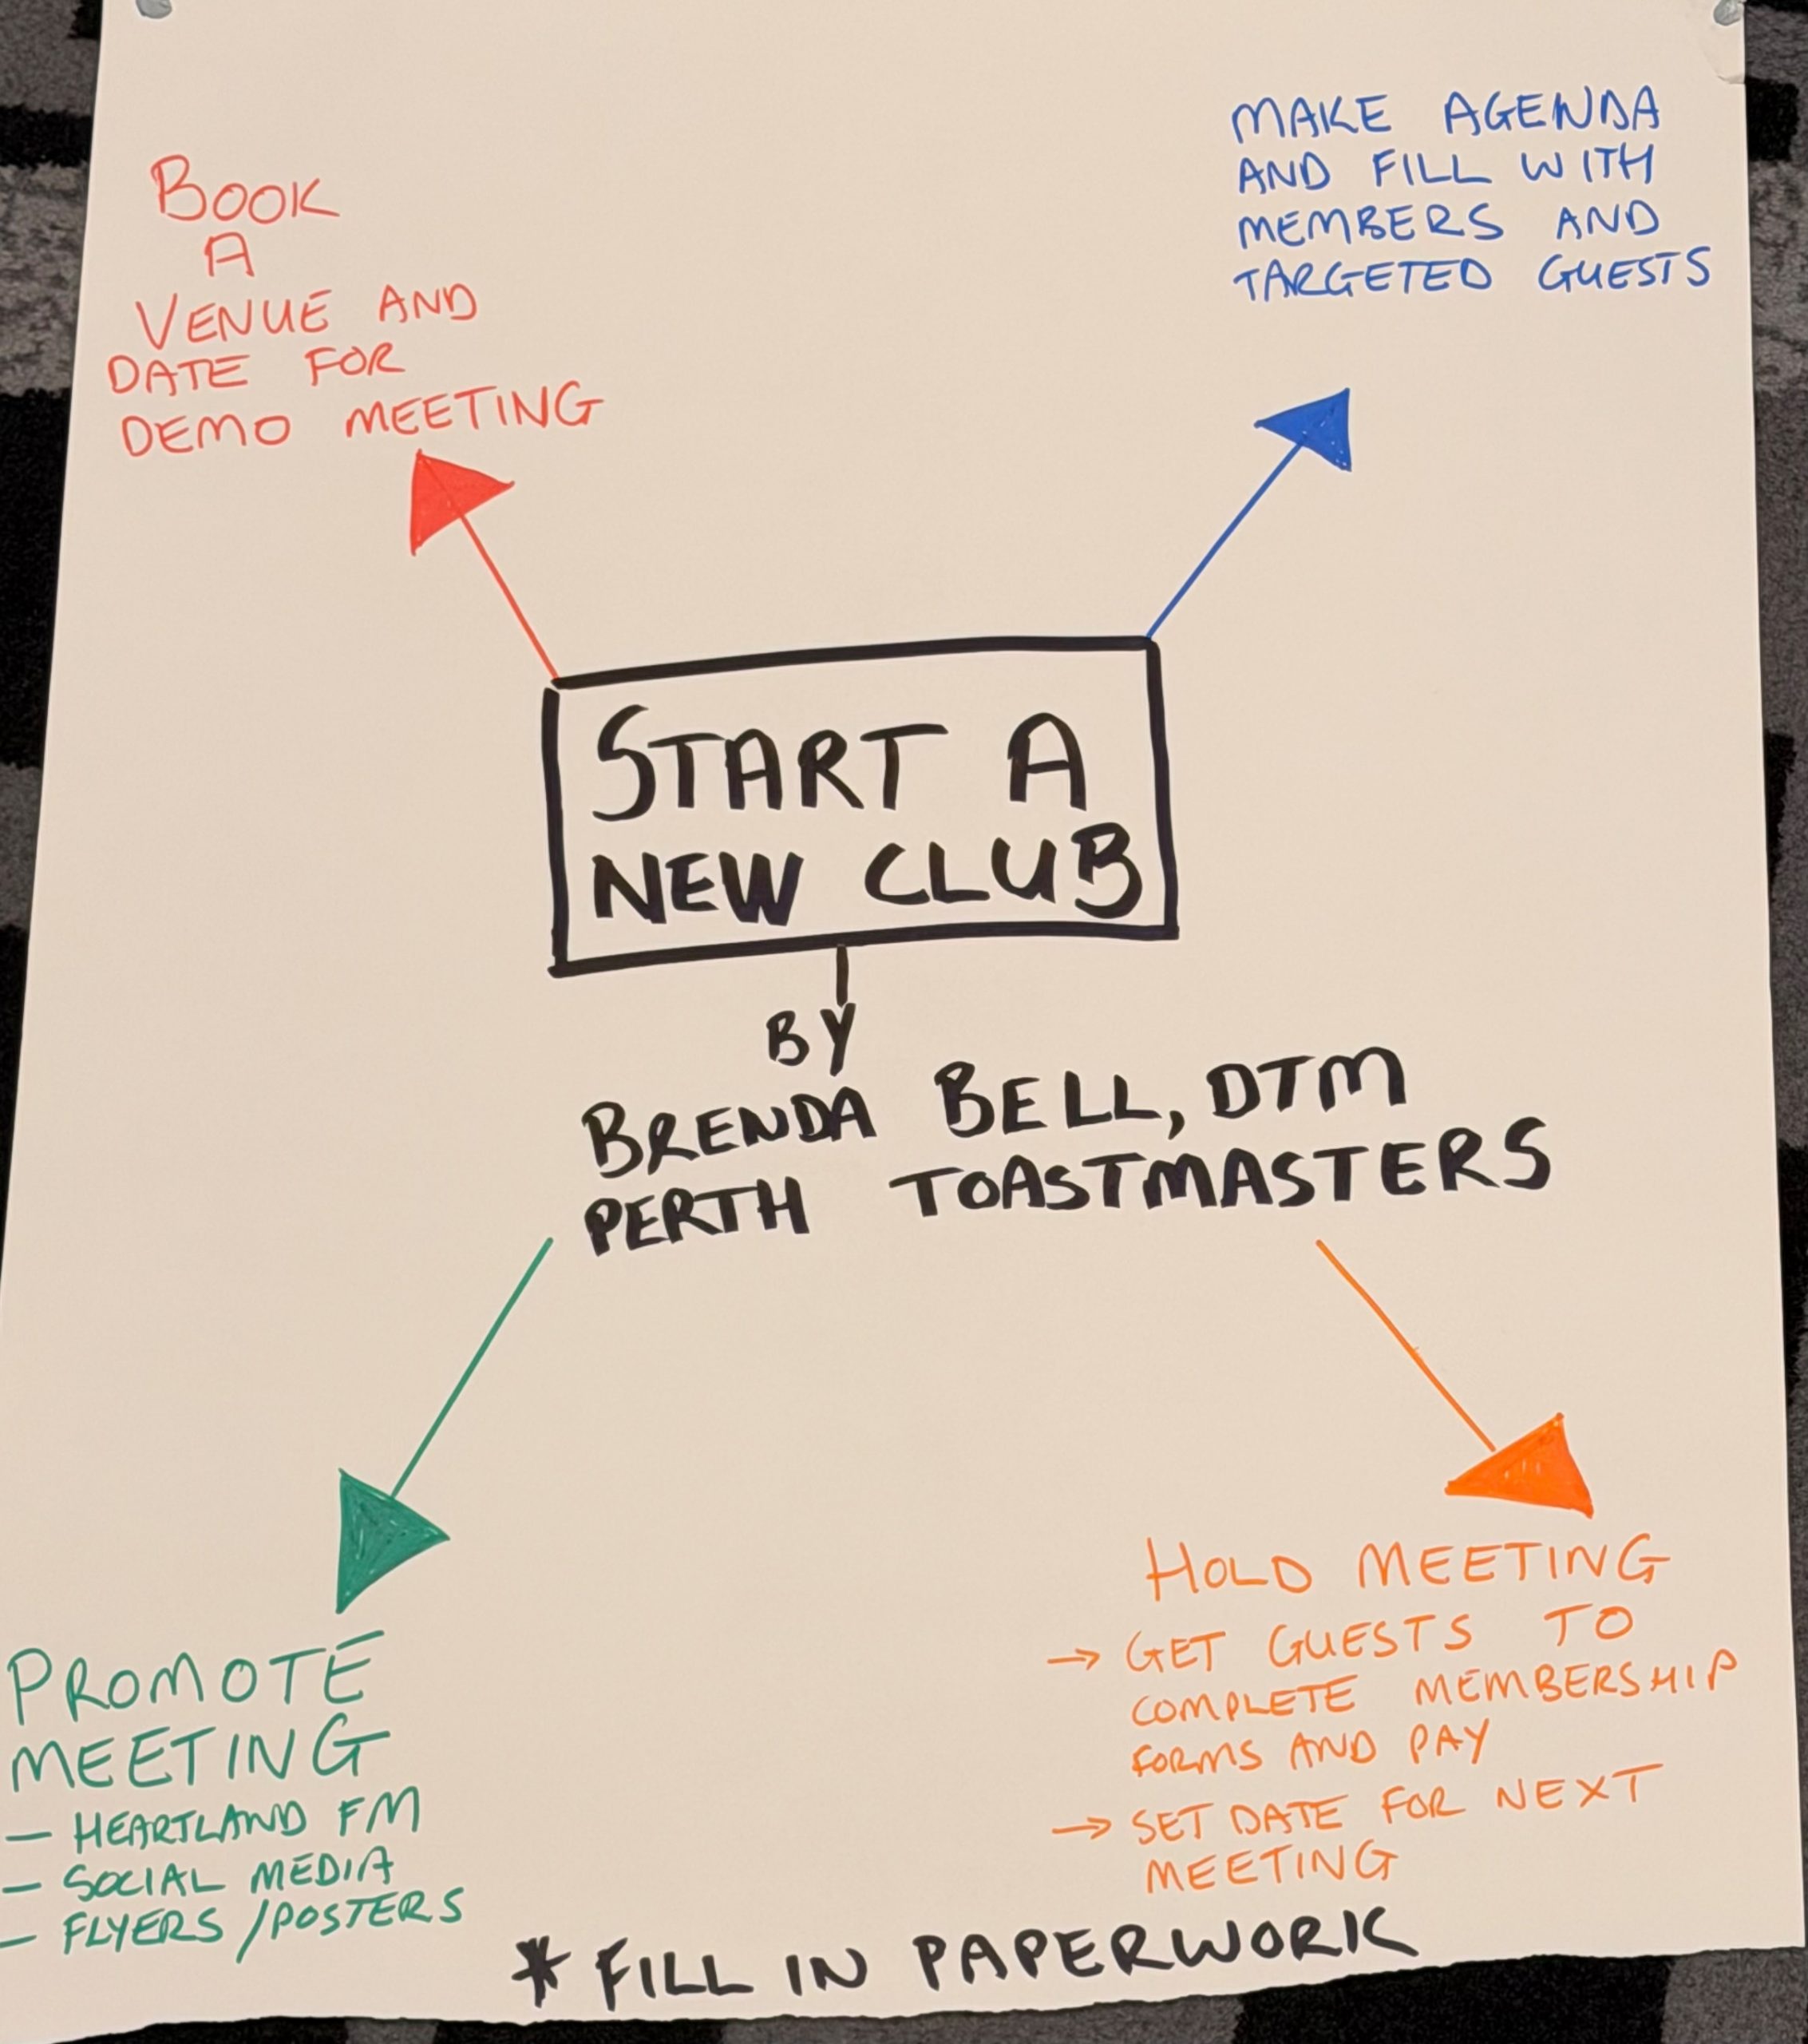 BOOK
A
VENUE AND
DATE FOR
DEMO MEETING
MAKE AGENDA
AND FILL WITH
MEMBERS AND
TARGETED GUESTS
START A
NEW CLUB
BY
BRENDA BELL, DTM
PERTH TOASTMASTERS
PROMOTE
MEETING
- HEARTLAND FM
- SOCIAL MEDIA
- FLYERS / POSTERS
HOLD MEETING
→ GET GUESTS TO
COMPLETE MEMBERSHIP
FORMS AND PAY
→ SET DATE FOR NEXT
MEETING
* FILL IN PAPERWORK